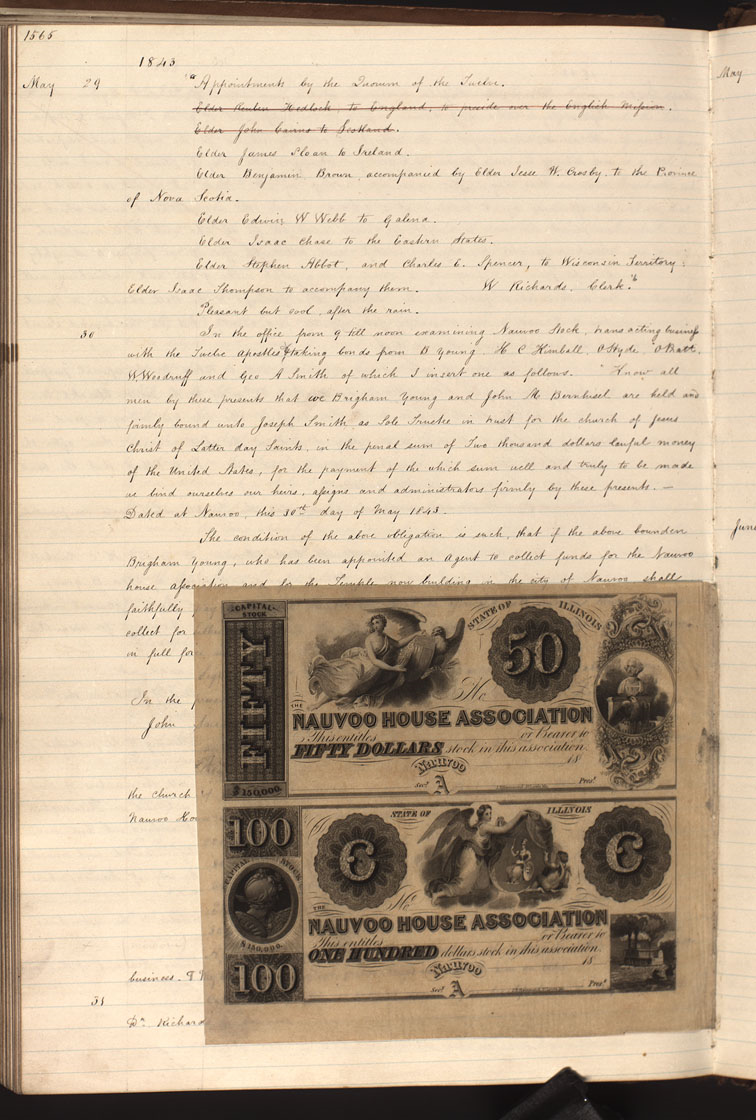 1565
1843
May 29 "Appointments by the Quorum of the Twelve.
Elder Reuben Hedlock, to England, to preside over the English Mission.
Elder John Cairns to Scotland.
Elder James Sloan to Ireland.
Elder Benjamin Brown, accompanied by Elder Jesse W. Crosby, to the Province
of Nova Scotia.
Elder Edwin W Webb to Galena.
Elder Isaac Chase to the Eastern States.
Elder Stephen Abbot, and Charles E. Spencer, to Wisconsin Territory;
Elder Isaac Thompson to accompany them. W Richards, Clerk."
Pleasant but cool, after the rain.
30 In the office from 9 till noon examining Nauvoo Stock, transacting business
with the Twelve Apostles & taking bonds from B Young, H C Kimball, O Hyde, O Pratt,
W. Woodruff and Geo A Smith of which I insert one as follows. "Know all
men by these presents that we Brigham Young and John M Bernhisel are held and
firmly bound unto Joseph Smith as Sole Trustee in trust for the church of Jesus
Christ of Latter day Saints, in the penal sum of Two thousand dollars lawful money
of the United States, for the payment of the which sum well and truly to be made
we bind ourselves our heirs, assigns and administrators firmly by these presents. —
Dated at Nauvoo, this 30th day of May 1843.
The condition of the above obligation is such, that if the above bounden
Brigham Young, who has been appointed an Agent to collect funds for the Nauvoo
house association and for the Temple now building in the city of Nauvoo shall
faithfully
collect for
in full for
In the
John
the church
Nauvoo
business.
31
Dr Richard
CAPITAL STOCK
FIFTY
$150,000.
STATE OF ILLINOIS
50
No
THE
NAUVOO HOUSE ASSOCIATION
This entitles or Bearer to
FIFTY DOLLARS stock in this association.
Nauvoo 18
Secy A Prest
100
CAPITAL STOCK
$150,000.
100
STATE OF ILLINOIS
C C
No
THE
NAUVOO HOUSE ASSOCIATION
This entitles or Bearer to
ONE HUNDRED dollars stock in this association.
Nauvoo 18
Secy A Prest
May
June